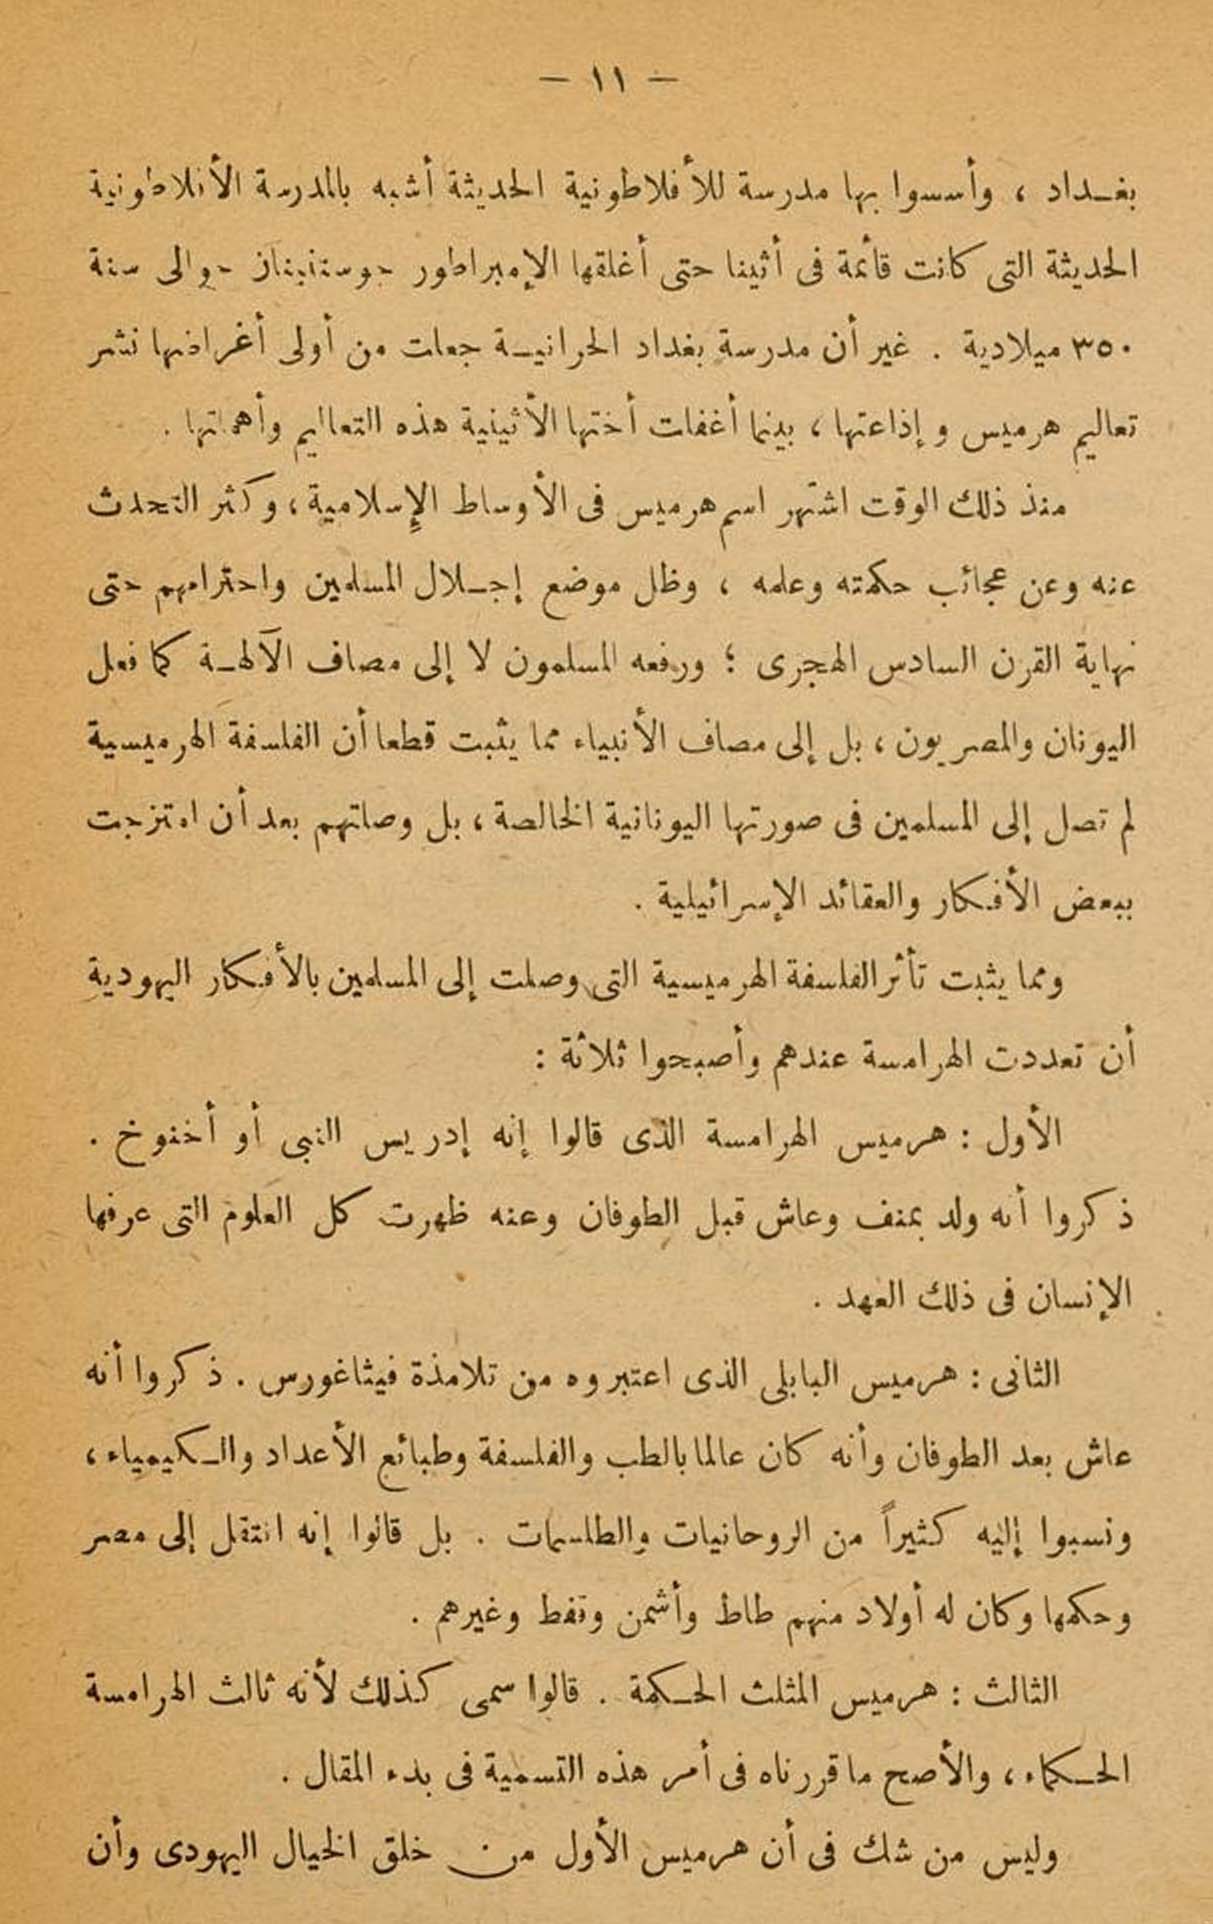 — ١١ —
بغـداد ، وأسسوا بها مدرسة للأفلاطونية الحديثة أشبه بالمدرسة الأفلاطونية
الحديثة التى كانت قائمة فى أثينا حتى أغلقها الإمبراطور جوستنيناز حوالى سنة
٣٥٠ ميلادية . غير أن مدرسة بغداد الحرانيـة جعلت من أولى أغراضها نشر
تعاليم هرميس وإذاعتها ، بينما أغفلت أختها الأثينية هذه التعاليم وأهملتها .
منذ ذلك الوقت اشتهر اسم هرميس فى الأوساط الإسلامية ، وكثر التحدث
عنه وعن عجائب حكمته وعلمه ، وظل موضع إجـلال المسلمين واحترامهم حتى
نهاية القرن السادس الهجرى ؛ ورفعه المسلمون لا إلى مصاف الآلهـة كما فعل
اليونان والمصريون ، بل إلى مصاف الأنبياء مما يثبت قطعا أن الفلسفة الهرميسية
لم تصل إلى المسلمين فى صورتها اليونانية الخالصة ، بل وصلتهم بعد أن امتزجت
ببعض الأفكار والعقائد الإسرائيلية .
ومما يثبت تأثر الفلسفة الهرميسية التى وصلت إلى المسلمين بالأفكار اليهودية
أن تعددت الهرامسة عندهم وأصبحوا ثلاثة :
الأول : هرميس الهرامسة الذى قالوا إنه إدريس النبى أو أخنوخ .
ذكروا أنه ولد بمنف وعاش قبل الطوفان وعنه ظهرت كل العلوم التى عرفها
الإنسان فى ذلك العهد .
الثانى : هرميس البابلى الذى اعتبروه من تلامذة فيثاغورس . ذكروا أنه
عاش بعد الطوفان وأنه كان عالما بالطب والفلسفة وطبائع الأعداد والـكيمياء ،
ونسبوا إليه كثيراً من الروحانيات والطلسمات . بل قالوا إنه انتقل إلى مصر
وحكمها وكان له أولاد منهم طاط وأشمن وتفط وغيرهم .
الثالث : هرميس المثلث الحـكمة . قالوا سمى كذلك لأنه ثالث الهرامسة
الحـكماء ، والأصح ما قررناه فى أمر هذه التسمية فى بدء المقال .
وليس من شك فى أن هرميس الأول من خلق الخيال اليهودى وأن